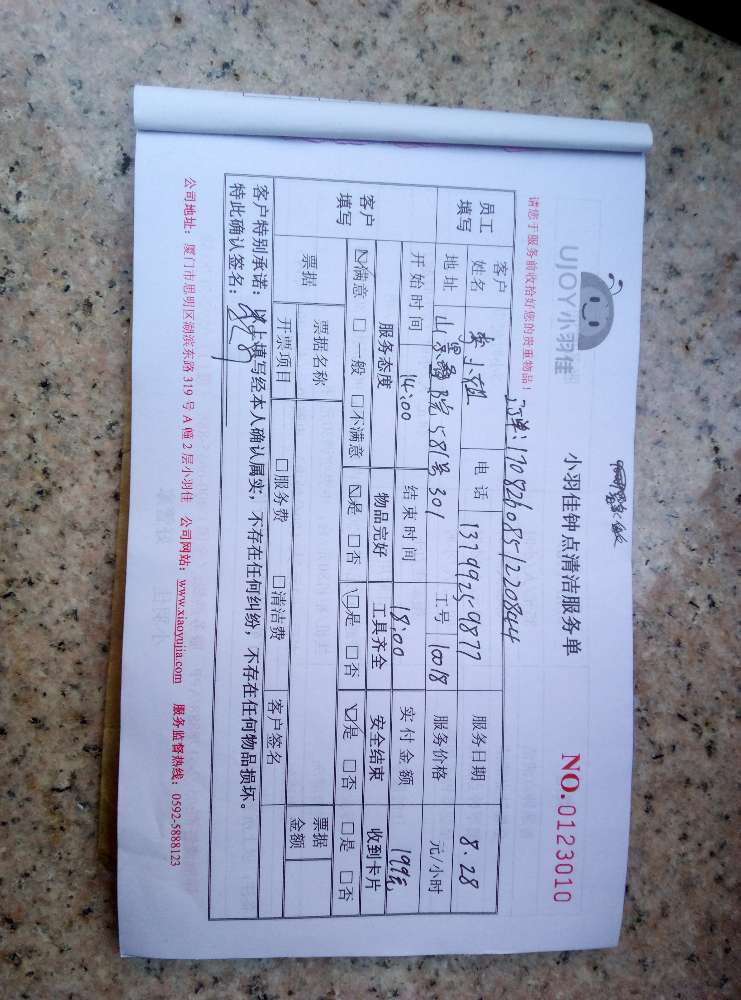 UJOY小羽佳
小羽佳钟点清洁服务单
NO.0123010
请您于服务前收拾好您的贵重物品!
订单:170826085/220844
员工填写
客户姓名 李小姐 电话 13799259877 服务日期 8.28
地址 581号301 工号 10018 服务价格 元/小时
开始时间 14:00 结束时间 18:00 实付金额 199元
客户填写
服务态度 物品完好 工具齐全 安全结束 收到卡片
☑满意 □一般 □不满意 ☑是 □否 ☑是 □否 ☑是 □否 □是 □否
票据 票据名称 客户签名 票据金额
开票项目 □服务费 □清洁费
客户特别承诺:以上填写经本人确认属实,不存在任何纠纷,不存在任何物品损坏。
特此确认签名:
公司地址:厦门市思明区湖滨东路 319 号 A 幢 2 层小羽佳 公司网站:www.xiaoyujia.com 服务监督热线:0592-5888123